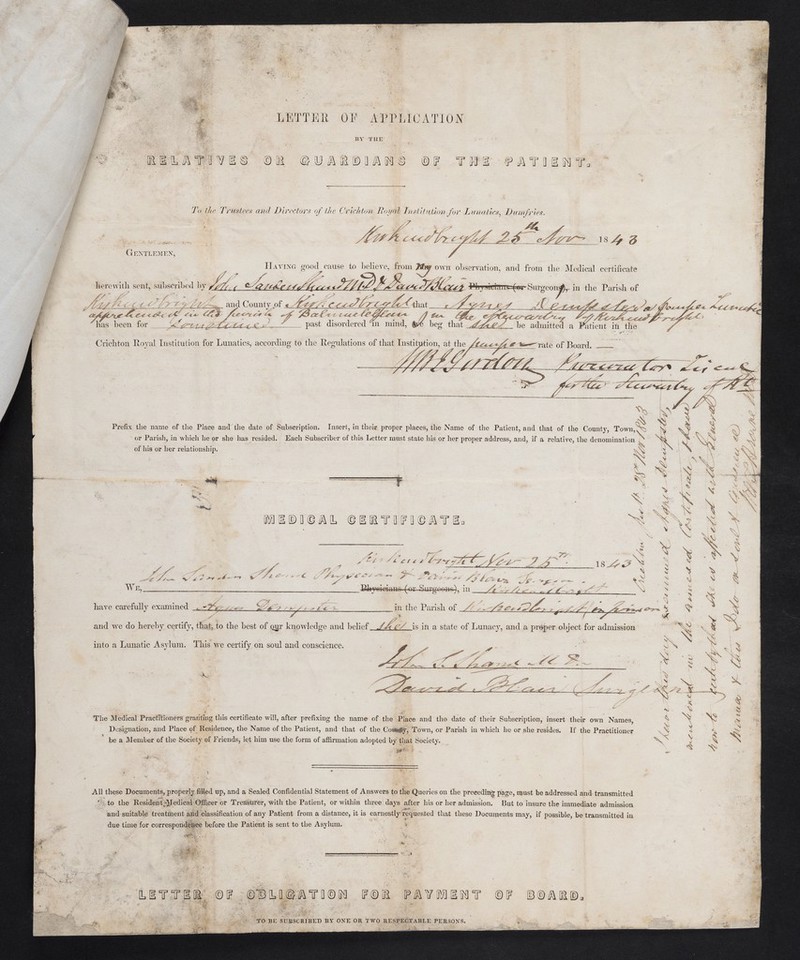 LETTER OF APPLICATION
BY THE
RELATIVES OR GUARDIANS OF THE PATIENT.
To the Trustees and Directors of the Crichton Royal Institution for Lunatics, Dumfries.
Kirkcudbright 25th Nov 1843
GENTLEMEN,
HAVING good cause to believe, from my own observation, and from the Medical certificate
herewith sent, subscribed by John Sanderson Shand M.D. & David Blair Physicians (or Surgeons), in the Parish of
Kirkcudbright and County of Kirkcudbright that Agnes Dempster a pauper Lunatic
apprehended in the parish of Balmaclellan in the Stewartry of Kirkcudbright
has been for sometime past disordered in mind, beg that she be admitted a Patient in the
Crichton Royal Institution for Lunatics, according to the Regulations of that Institution, at the pauper rate of Board.
Gordon Procurator Fiscal
for the Stewartry of Kt
Prefix the name of the Place and the date of Subscription. Insert, in their proper places, the Name of the Patient, and that of the County, Town,
or Parish, in which he or she has resided. Each Subscriber of this Letter must state his or her proper address, and, if a relative, the denomination
of his or her relationship.
MEDICAL CERTIFICATE.
Kirkcudbright Nov 25th 1843
John Shand Physician & David Blair Surgeon
WE, Physicians (or Surgeons), in Kirkcudbright
have carefully examined Agnes Dempster in the Parish of Kirkcudbright, in person
and we do hereby certify, that, to the best of our knowledge and belief she is in a state of Lunacy, and a proper object for admission
into a Lunatic Asylum. This we certify on soul and conscience.
John S. Shand M.D.
David Blair Surgeon
The Medical Practitioners granting this certificate will, after prefixing the name of the Place and the date of their Subscription, insert their own Names,
Designation, and Place of Residence, the Name of the Patient, and that of the County, Town, or Parish in which he or she resides. If the Practitioner
be a Member of the Society of Friends, let him use the form of affirmation adopted by that Society.
All these Documents, properly filled up, and a Sealed Confidential Statement of Answers to the Queries on the preceding page, must be addressed and transmitted
to the Resident Medical Officer or Treasurer, with the Patient, or within three days after his or her admission. But to insure the immediate admission
and suitable treatment and classification of any Patient from a distance, it is earnestly requested that these Documents may, if possible, be transmitted in
due time for correspondence before the Patient is sent to the Asylum.
LETTER OF OBLIGATION FOR PAYMENT OF BOARD.
TO BE SUBSCRIBED BY ONE OR TWO RESPECTABLE PERSONS.
Crichton 28 Nov 1843
I have this day examined Agnes Dempster,
mentioned in the annexed Certificate, & have
now to certify that she is affected with General
Mania & this I do on soul & conscience